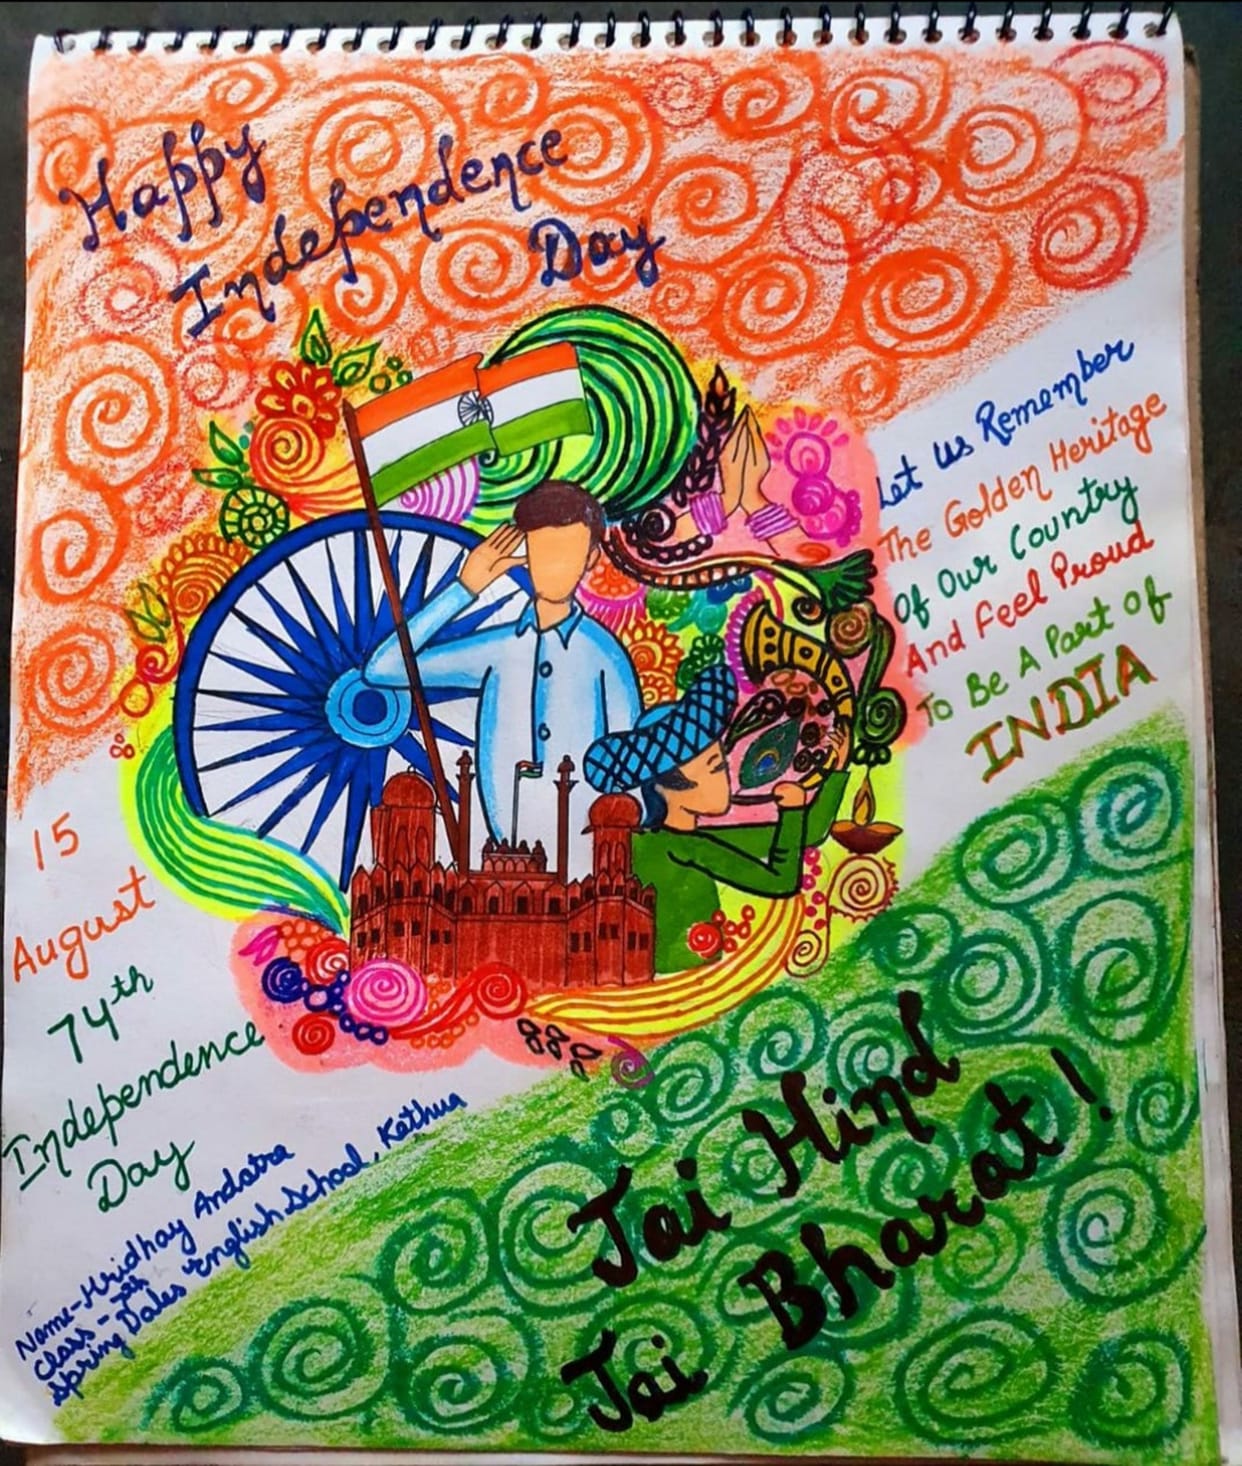 Happy
Independence
Day
Let Us Remember
The Golden Heritage
Of Our Country
And Feel Proud
To Be A Part Of
INDIA
15
August
74th
Independence
Day
Name - Hridhay Andotra
Class - 7th
Spring Dales English School, Kathua
Jai Hind
Jai Bharat!